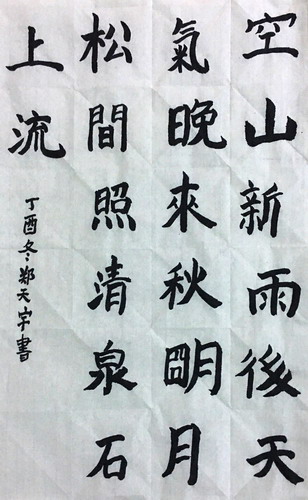 空山新雨後天
氣晚來秋明月
松間照清泉石
上流
丁酉冬鄭天宇書